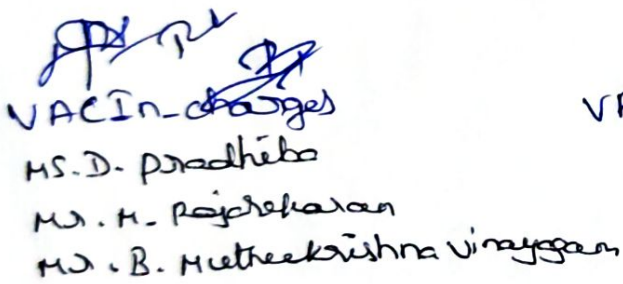 VAC In-charges VA
Ms. D. Pradhiba
Mr. M. Rajasekaran
Mr. B. Muthukrishna Vinayagam